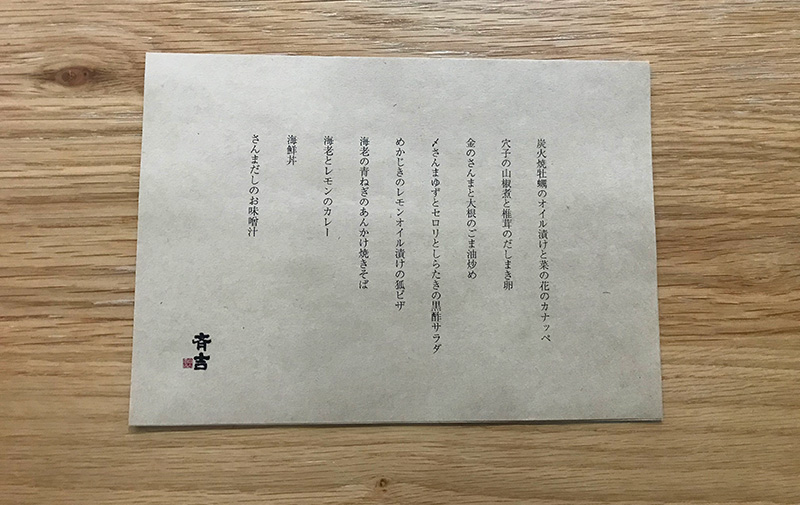 炭火焼牡蠣のオイル漬けと菜の花のカナッペ
穴子の山椒煮と椎茸のだしまき卵
金のさんまと大根のごま油炒め
〆さんまゆずとセロリとしらたきの黒酢サラダ
めかじきのレモンオイル漬けの狐ピザ
海老の青ねぎのあんかけ焼きそば
海老とレモンのカレー
海鮮丼
さんまだしのお味噌汁
斉吉